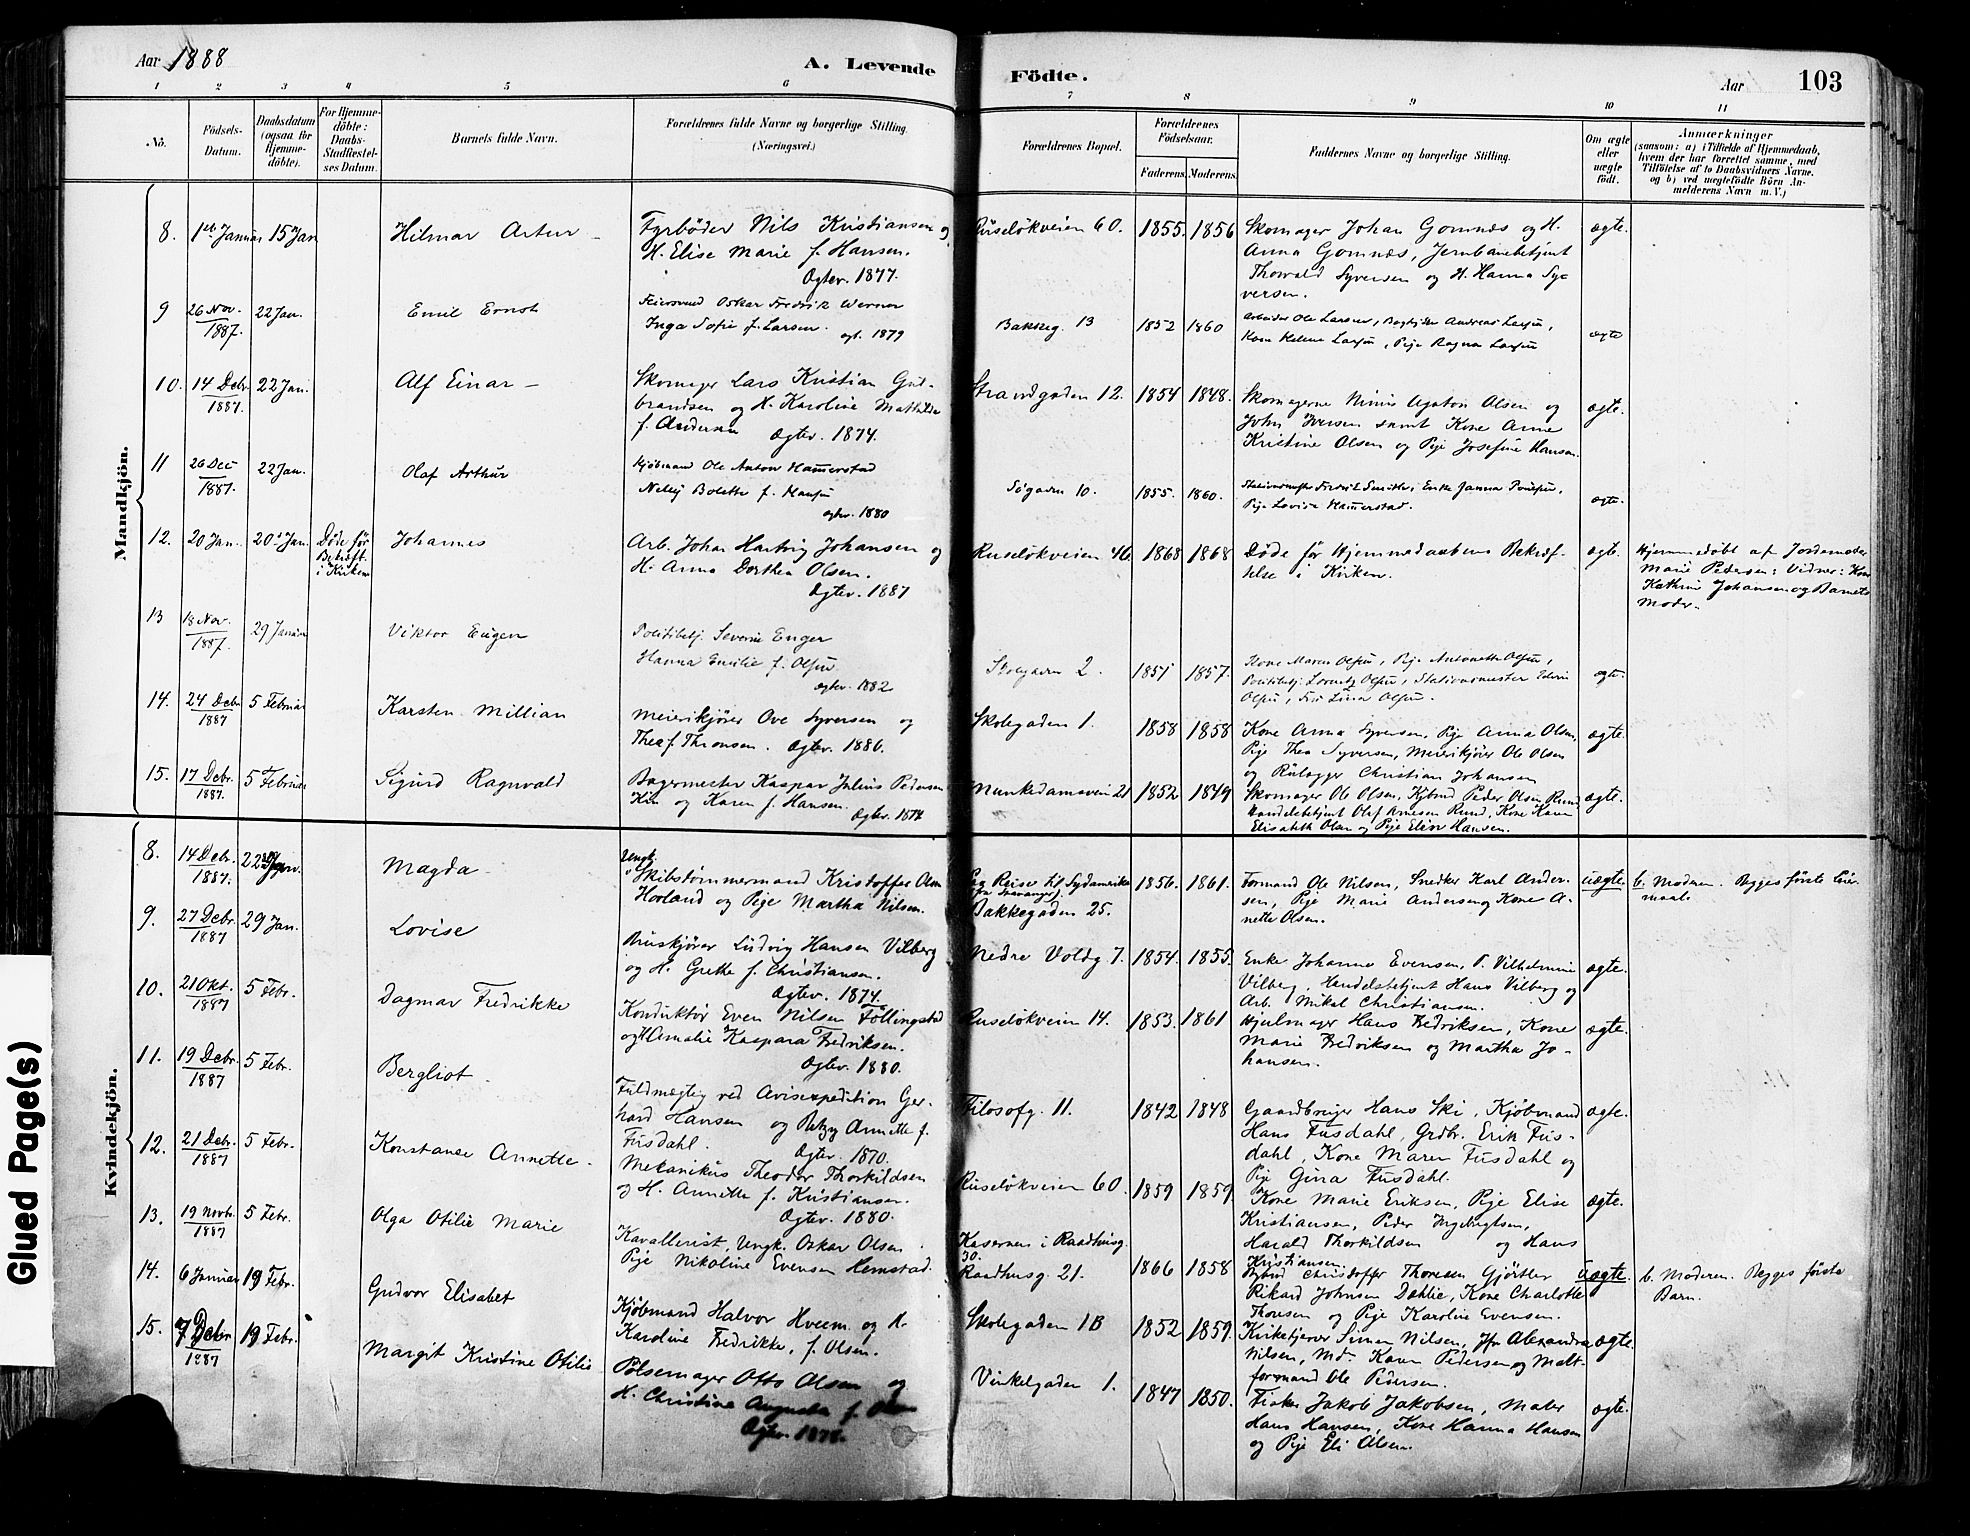 Aar 1888
A. Levende
Födte.
Aar
103
1 2 3 4 5 6 7 8 9 10 11
No.
Födsels-Datum.
Daabsdatum (ogsaa for Hjemme-döbte).
For Hjemme-döbte: Daabs-Stadfæstel-ses Datum.
Barnets fulde Navn.
Forældrenes fulde Navne og borgerlige Stilling. (Næringsvei.)
Forældrenes Bopæl.
Forældrenes Födselsaar.
Faderens. Moderens.
Faddernes Navne og borgerlige Stilling.
Om ægte eller uægte födt.
Anmærkninger
(saasom: a) i Tilfælde af Hjemmedaab,
hvem der har forrettet samme, med
Tilföielse af to Daabsvidners Navne.
og b) ved uægtefödte Börn An-
melderens Navn m. V.)
Mandkjön.
8. 1ste Januar 15 Jan Hilmar Artur
Fyrbøder Nils Kristiansen og
H. Elise Marie f. Hansen.
Ægtev. 1877.
Ruseløkveien 60. 1855. 1856
Skomager Johan Gomnæs og H.
Anna Gomnæs, Jernbanebetjent
Thorvald Syversen og H. Hanna Sy-
versen.
ægte.
9 26 Nov. 1887. 22 Jan. Emil Ernst
Feiersvend Oskar Fredrik Werner
Inga Sofie f. Larsen.
ægt. 1879
Bakkeg. 13 1852 1860
Arbeider Ole Larsen, Andreas Larsen,
Kone Helene Larsen, Pige Ragna Larsen
ægte
10. 14 Debr 1887. 22 Jan. Alf Einar
Skomager Lars Kristian Gul-
brandsen og H. Karoline Mathilde
f. Andersen Ægtev. 1874.
Strandgaden 12. 1854 1848.
Skomagerne Agaton Olsen og
John Iversen samt Kone Anne
Kristine Olsen og Pige Josefine Hansen.
ægte.
11 26 Dec 1887. 22 Jan. Olaf Arthur
Kjøbmand Ole Anton Hammerstad
Bolette f. Hansen
ægtev. 1880
Søgaden 10. 1855. 1860.
Fredrik Smith, Enke Janna Poulsen,
Pige Lovise Hammerstad.
ægte.
12. 20 Jan. 20 Jan. Døde før Bekræft. i Kirken Johannes
Arb. Johan Hartvig Johansen og
H. Anna Dorthea Olsen.
Ægtev. 1887
Ruseløkveien 46. 1863 1868
Døde før Hjemmedaabens Bekræf-
telse i Kirken.
ægte.
Hjemmedøbt af Jordemoder
Marie Pedersen: Vidner: Kone
Kathrine Johansen og Barnets
Moder.
13 18 Nov. 1887. 29 Januar Viktor Eugen
Politibetj. Severin Enger
Hanna Emilie f. Olsen
ægtev. 1882
Skolgaden 2. 1851 1857.
Kone Maren Olsen, Pige Antonette Olsen,
Politibetj. Lorentz Olsen, Stationsmester Edvin
Olsen, Lina Olsen.
ægte.
14. 24 Debr 1887 5 Februar Karsten Millian
Meierikjører Ove Syversen og
Thea f. Thronsen. Ægtev. 1886.
Skolegaden 1. 1858 1858
Kone Anna Syversen, Pige Anna Olsen,
Pige Thea Syversen, Meierikjører Ole Olsen
og Christian Johansen
ægte.
15. 17 Debr. 1887. 5 Februar Sigurd Ragnvald
Bagermester Kaspar Julius Pedersen
og Karen f. Hansen.
Munkedamsvein 21 1852 1849
Skomager Ole Olsen, Kjbmd Peder Olsen Rund,
Handelsbetjent Olaf Arnesen Rund, Kone Karen
Elisabeth Olsen og Pige Elise Hansen.
ægte.
Kvindekjön.
8. 14 Debr. 1887. 22 Magda
Ungk. Skibstømmermand Kristoffer Olsen
Horland og Pige Martha Nilsen.
Paa Reise til Sydamerika
(fra Stavanger)
Bakkegaden 25. 1856. 1861.
Formand Ole Nilsen, Snedker Karl Ander-
sen, Pige Marie Andersen og Kone A-
nette Olsen.
uægte.
b. Moderen. Begges første Leier-
maal.
9. 27 Debr. 1887 29 Jan. Lovise
Bruskjører Ludvig Hansen Vilberg
og H. Grethe f. Christiansen.
Ægtev. 1874.
Nedre Voldg. 7. 1854. 1855.
Enke Johanne Evensen, P. Vilhelmine
Vilberg, Handelsbetjent Hans Vilberg og
Arb. Mikal Christiansen.
ægte.
10. 21 Okt. 1887 5 Febr. Dagmar Fredrikke
Konduktør Even Nilsen Føllingstad
og H. Amalie Kaspara Fredriksen.
Ægtev. 1880.
Ruseløkveien 14. 1853. 1861
Hjulmager Hans Fredriksen, Kone
Marie Fredriksen og Martha Jo-
hansen.
ægte.
11. 19 Debr. 1887 5 Febr. Bergliot
Fuldmægtig ved Avisexpedition Ger-
hard Hansen og Betzy Annette f.
Fusdahl. Ægtev. 1870.
Filosofg. 11. 1842 1848
Gaardbruger Hans Ski, Kjøbmand
Hans Fusdahl, Grdbr. Erik Fus-
dahl, Kone Maren Fusdahl og
Pige Gina Fusdahl.
ægte.
12. 21 Debr. 1887 5 Febr. Konstance Annette
Mekanikus Theodor Thorkildsen
og H. Annette f. Kristiansen.
Ægtev. 1880.
Ruseløkveien 60. 1859 1859.
Kone Marie Eriksen, Pige Elise
Kristiansen, Peder Ingebrigtsen,
Harald Thorkildsen og Hans
Kristiansen.
ægte.
13. 19 Novbr. 1887 5 Febr. Olga Otilie Marie
Kavallerist, Ungk. Oskar Olsen
Pige Nikoline Evensen Hemstad.
Kasernen i Raadhusg. 30.
Raadhusg. 21. 1866 1858
Christoffer Thoresen Gjörtler
Rikard Johnsen Dahlie, Kone Charlotte
Thoresen og Pige Karoline Evensen.
uægte.
b. Moderen. Begges første
Barn.
14. 6 Januar 19 Febr. Gudvor Elisabet
Kjøbmand Halvor Hveem og H.
Karoline Fredrikke, f. Olsen.
Skolegaden 1B 1852 1859.
Kirketjener Simen Nilsen, Jfr Alexandra
Nilsen, Md. Karen Pedersen og Malt-
formand Ole Pedersen.
ægte.
15. 7 Debr 1887 19 Febr. Margit Kristine Otilie
Pølsemager Otto Olsen og
H. Christine Augusta f. Olsen
Vinkelgaden 1. 1847 1850.
Fisker Jakob Jakobsen, Maler
Hans Hansen, Kone Hanna Hansen
og Pige Eli Olsen.
ægte.
Glued Page(s)